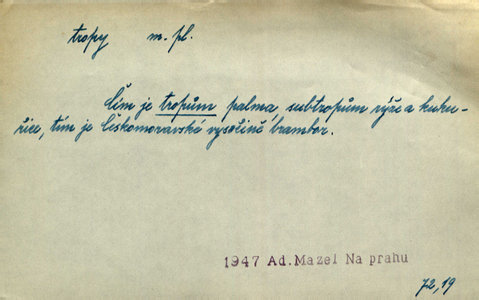 tropy m. pl.
Čím je tropům palma, subtropům rýže a kuku-
řice, tím je Českomoravské vysočině brambor.
1947 Ad. Mazel Na prahu
72,19